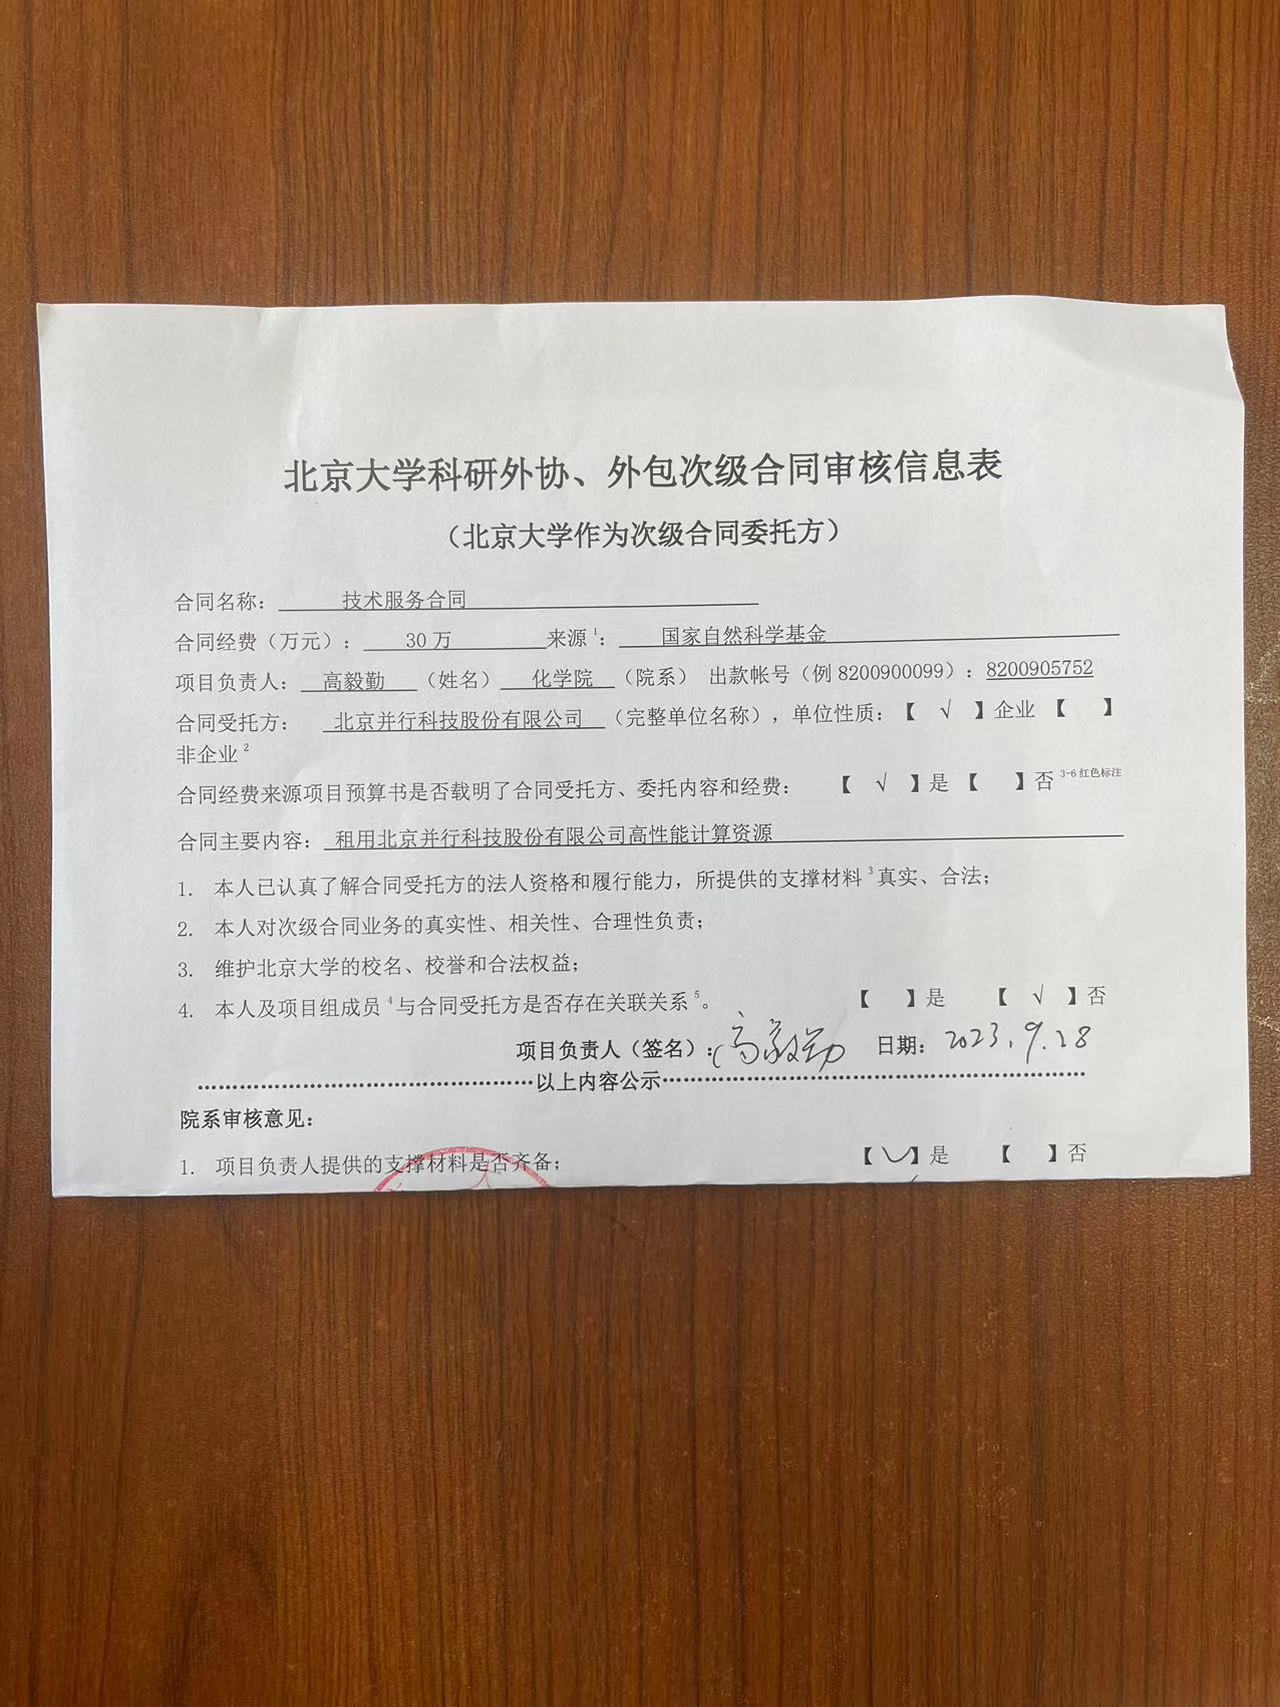 北京大学科研外协、外包次级合同审核信息表
（北京大学作为次级合同委托方）
合同名称： 技术服务合同
合同经费（万元）： 30 万 来源1： 国家自然科学基金
项目负责人： 高毅勤 （姓名） 化学院 （院系） 出款帐号（例 8200900099）：8200905752
合同受托方： 北京并行科技股份有限公司 （完整单位名称），单位性质：【 √ 】企业 【 】
非企业2
合同经费来源项目预算书是否载明了合同受托方、委托内容和经费： 【 √ 】是 【 】否 3-6 红色标注
合同主要内容： 租用北京并行科技股份有限公司高性能计算资源
1. 本人已认真了解合同受托方的法人资格和履行能力，所提供的支撑材料3真实、合法；
2. 本人对次级合同业务的真实性、相关性、合理性负责；
3. 维护北京大学的校名、校誉和合法权益；
4. 本人及项目组成员4与合同受托方是否存在关联关系5。 【 】是 【 √ 】否
项目负责人（签名）：高毅勤 日期：2023.9.28
……………………以上内容公示……………………
院系审核意见：
1. 项目负责人提供的支撑材料是否齐备； 【√】是 【 】否